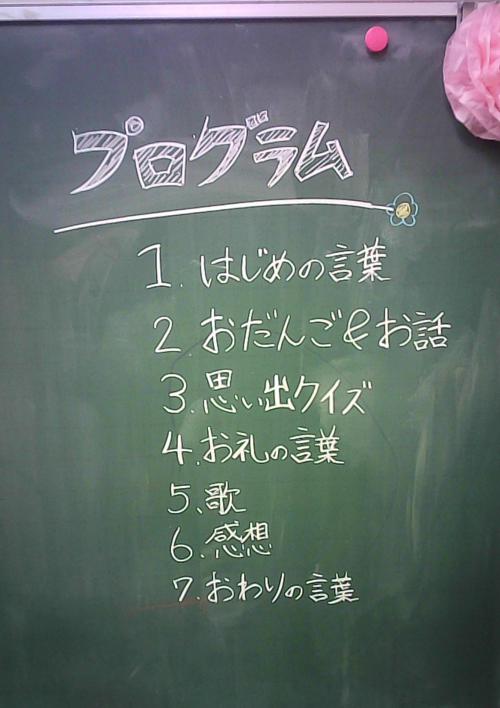 プログラム
1. はじめの言葉
2 おだんご&お話
3. 思い出クイズ
4. お礼の言葉
5. 歌
6. 感想
7. おわりの言葉